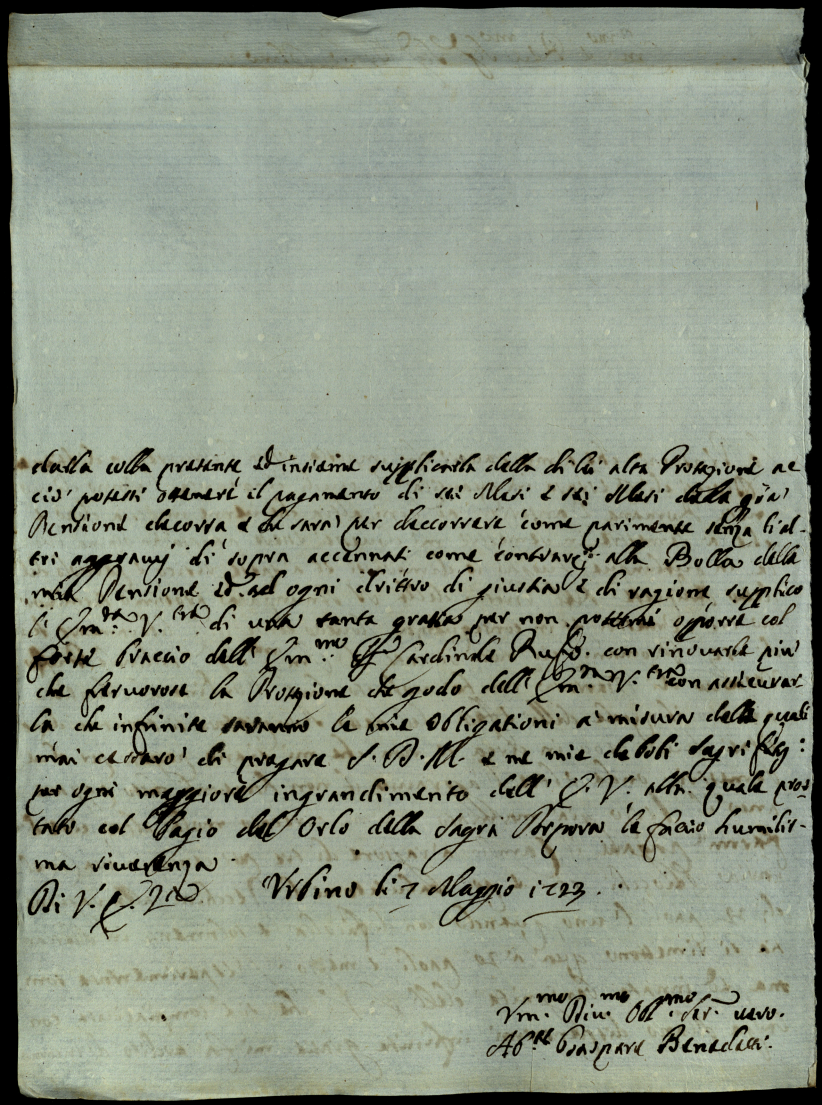 darla colla presente ed insieme supplicarla della di lui alta Protezione ac
ciò potessi ottenere il pagamento di sei Mesi e sei Mesi della
Pensione decorsa e che sarà per daccorrere come parimente senza l'al-
tri aggravij di sopra accennati come contrarij alla Bolla della
mia Pensione ed ad ogni diritto di giustizia e di ragione supplico
l' Em.ma V.ra di una tanta grazia per non potermi opporre col
forte braccio dell' Em.mo Cardinale Rufo. con rinovarle più
che fervorose la Protezione che godo dell' Em.za V.ra con assicurar
la che infinite saranno le mie Obligationi a misura delle quali
mai cessarò di pregare S. D. M. e ne miei deboli Sagrifizij:
per ogni maggiore ingrandimento dell' E. V. alla quale pros-
trato col bagio del Orlo della Sagra Porpora le faccio humilis-
ma riverenza
Di V. E. Urbino li 7 Maggio 1723.
Vm.mo Div.mo Obl.mo Ser. vero.
Ab.te Gaspare Benedetti.